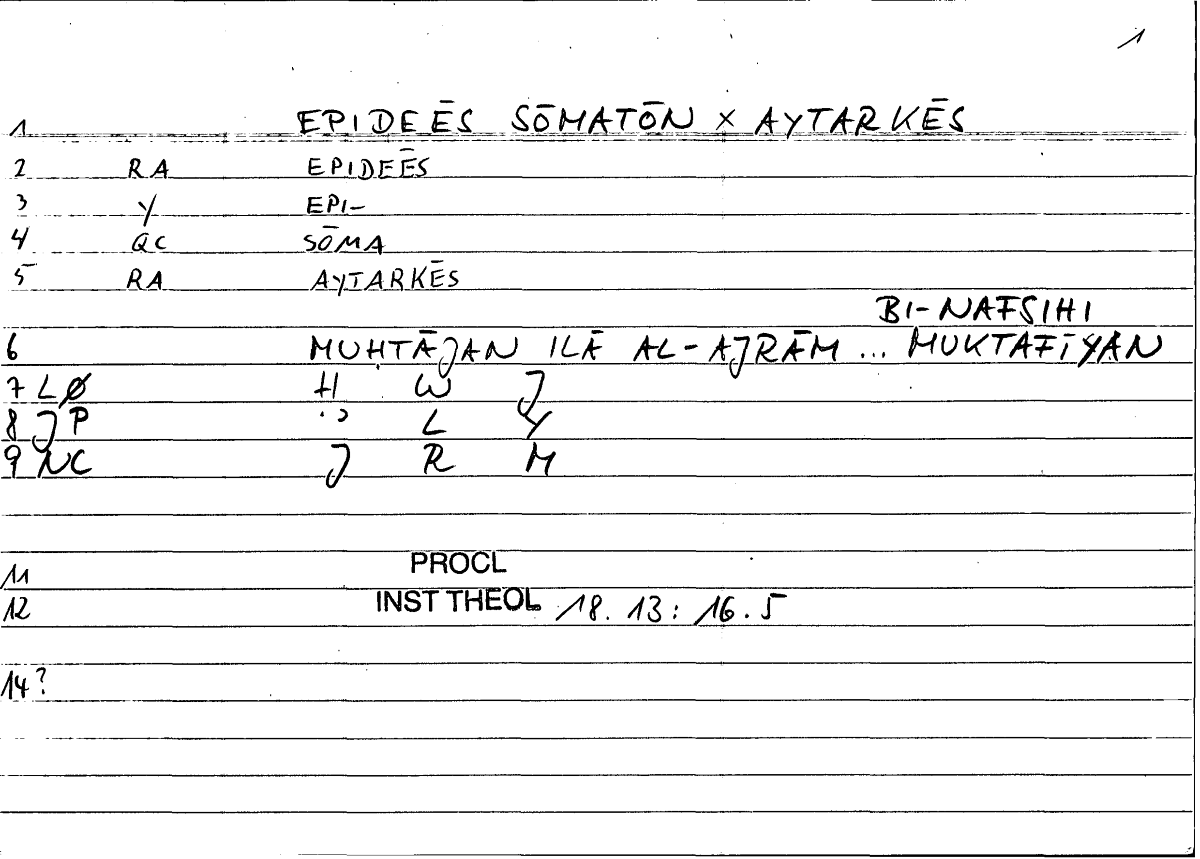 1
1 EPIDEĒS SŌMATŌN × AYTARKĒS
2 RA EPIDEĒS
3 Y EPI-
4 QC SŌMA
5 RA AYTARKĒS
BI-NAFSIHI
6 MUHTĀJAN ILĀ AL-AJRĀM ... MUKTAFĪYAN
7 LØ H W J
8 JP ' L Y
9 NC J R M
11 PROCL
12 INST THEOL 18. 13: 16. 5
14?